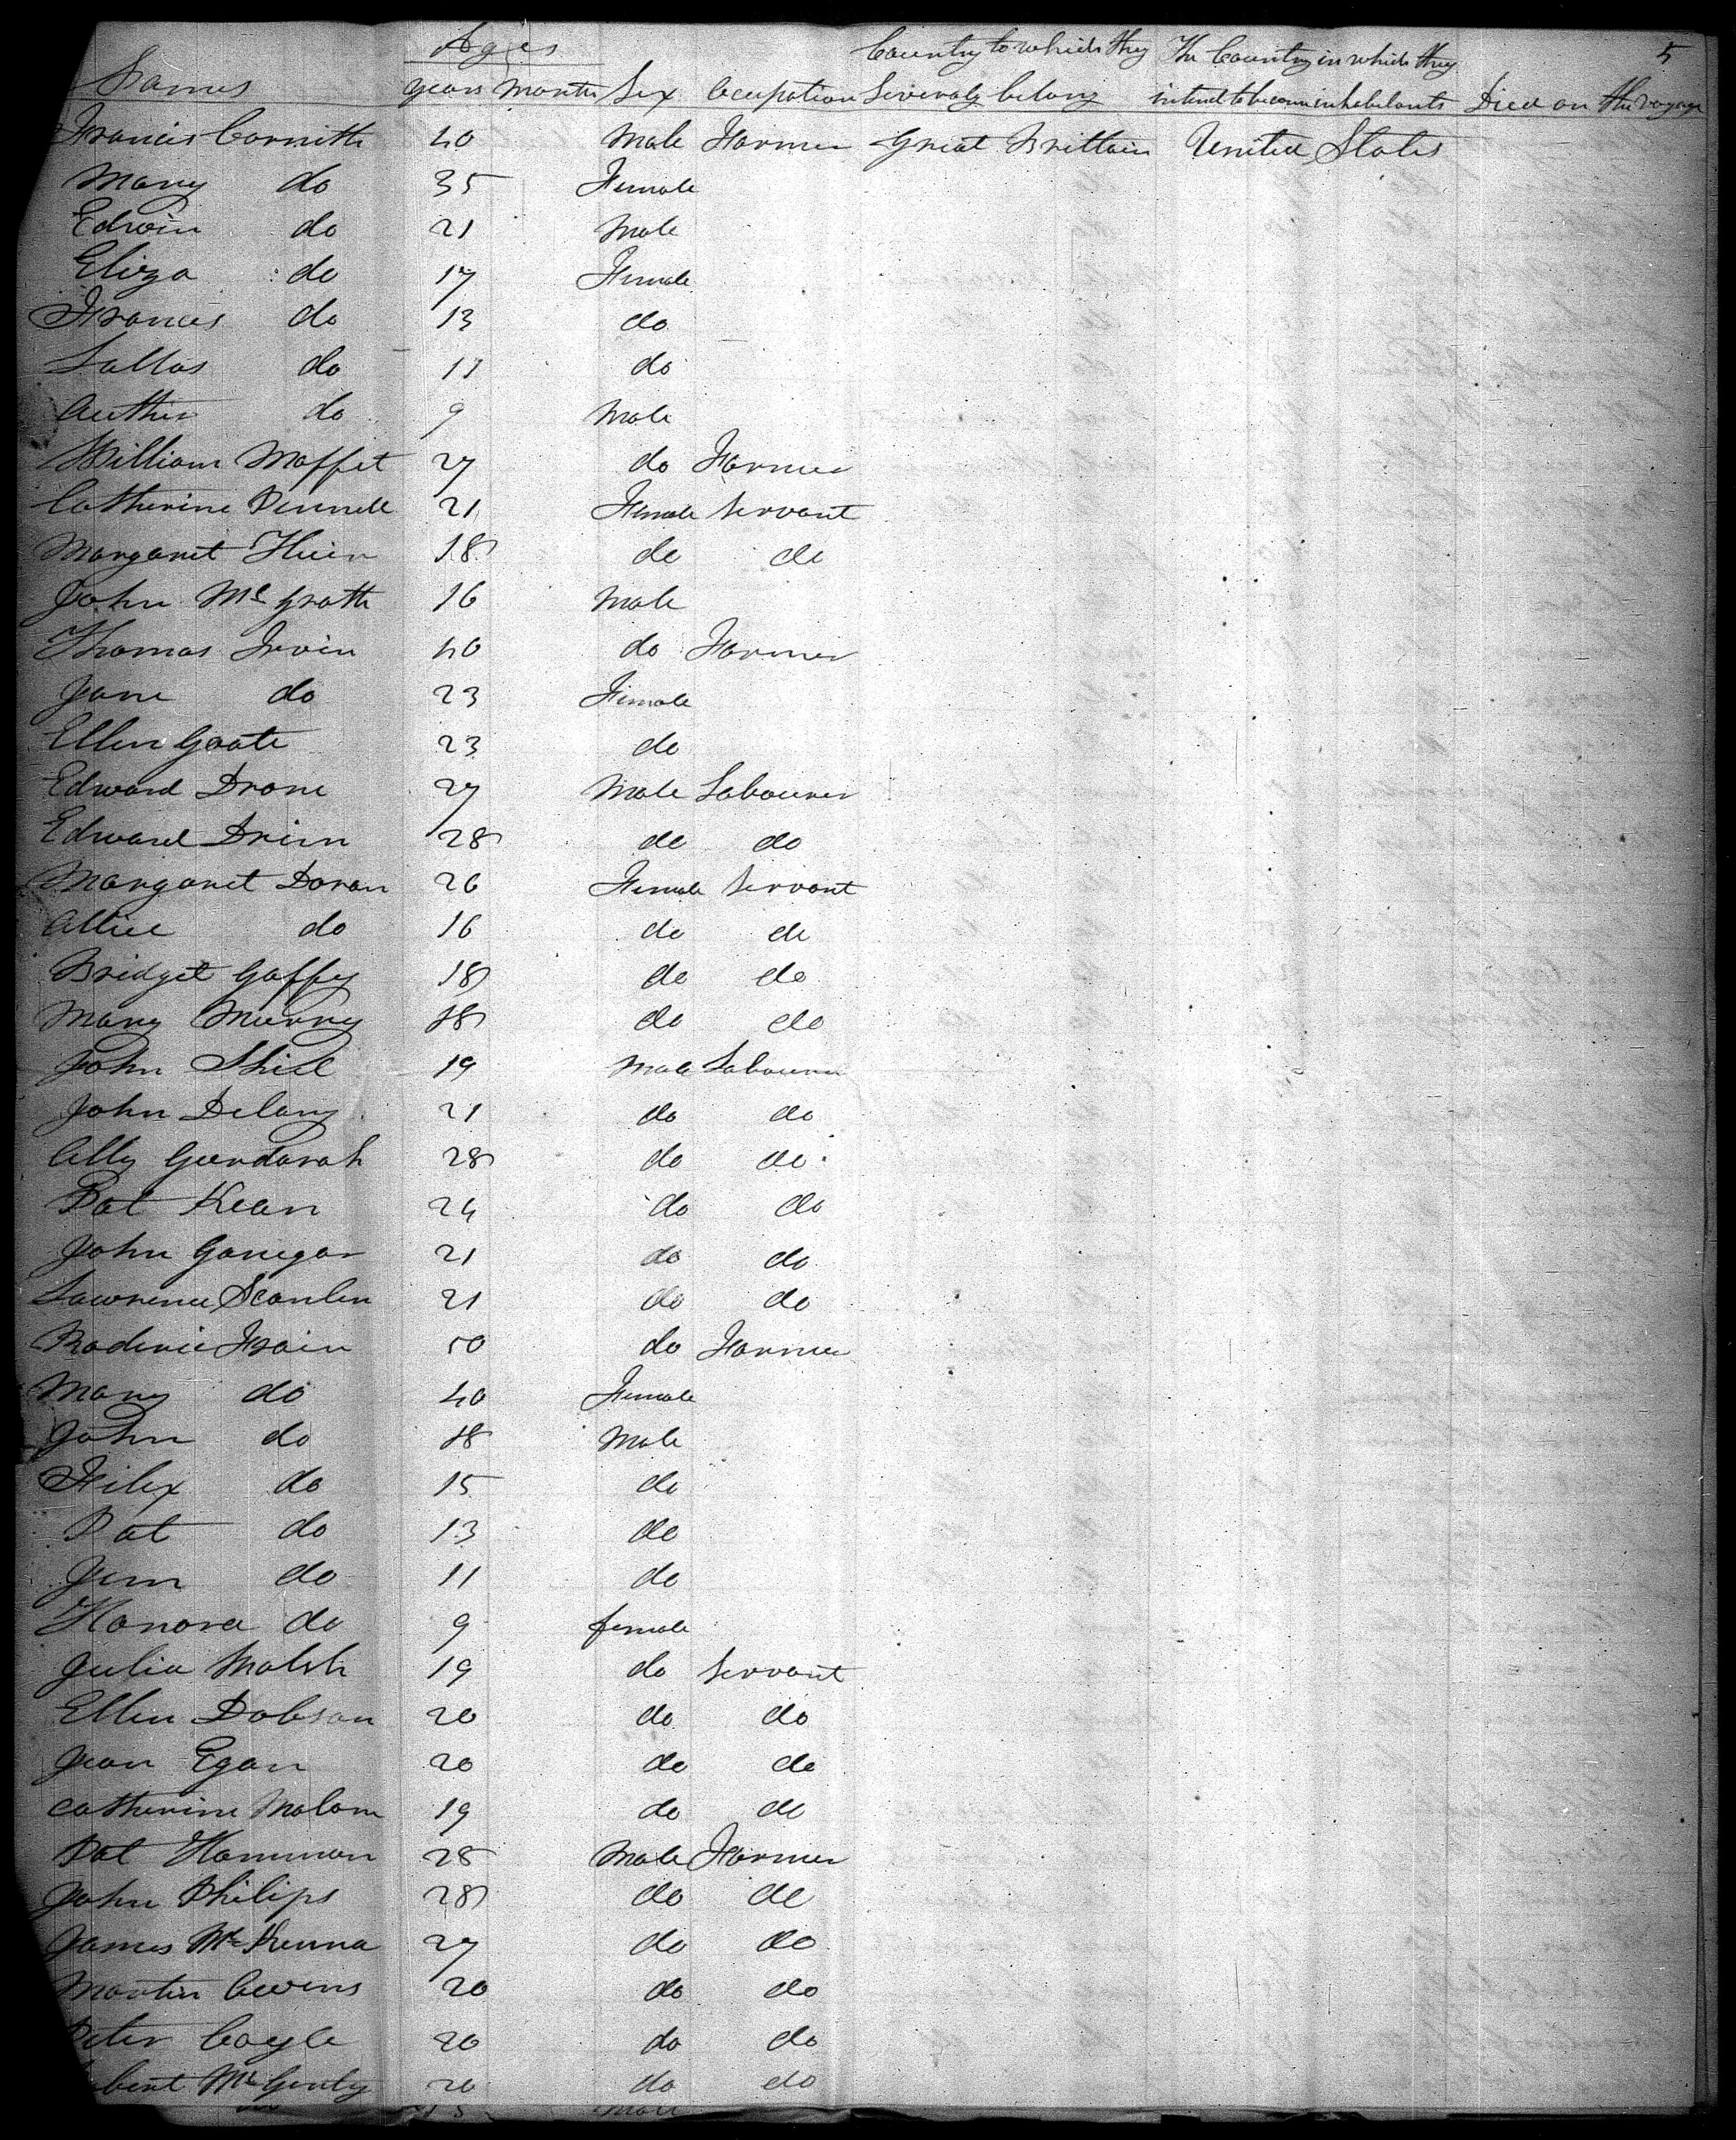 Ages Country to which they The Country in which they 5
Names years months Sex Occupation Severaly belong intend to become inhabitants Died on the voyage
Francis Cornith 40 Male Farmer Great Brittain United States
Mary do 35 Female
Edwin do 21 Male
Eliza do 17 Female
Frances do 13 do
do 11 do
Auther do 9 Male
William Moffet 27 do Farmer
Catherine Pennell 21 Female Servant
Margaret 18 do do
John Mc Grath 16 Male
Thomas Irvin 40 do Farmer
Jane do 23 Female
Ellen Goate 23 do
Edward Drone 27 Male Labourer
Edward Drinn 28 do do
Margaret Doran 26 Female Servant
Allice do 16 do do
Bridget Gaffey 18 do do
Mary Murray 18 do do
John Shiel 19 Male Labourer
John Delany 21 do do
28 do do
Pat Kean 24 do do
John Ganegan 21 do do
Lawrence Scanlen 21 do do
Roderic Frain 50 do Farmer
Mary do 40 Female
John do 18 Male
Filix do 15 do
Pat do 13 do
Jim do 11 do
Honora do 9 female
Julia Malsh 19 do Servant
Ellen Dobson 20 do do
Jean Egan 20 do do
Catherine Malone 19 do do
Pat Hammon 28 Male Farmer
John Philips 28 do do
James Mc Kenna 27 do do
Martin Cevens 20 do do
Peter Coyle 20 do do
Mc Ginty 20 do do
Male